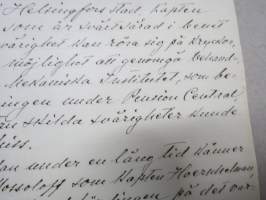 i Helsingfors stad, Kapten
som är svårt sårad i benet
svårighet kan röra sig på kryckor,
möjlighet att genomgå behand-
Mekaniska Institutet, som be-
ingen under Pension Central,
skilda svårigheter kunde
hus.
under en lång tid känner
som Kapten
på det var-